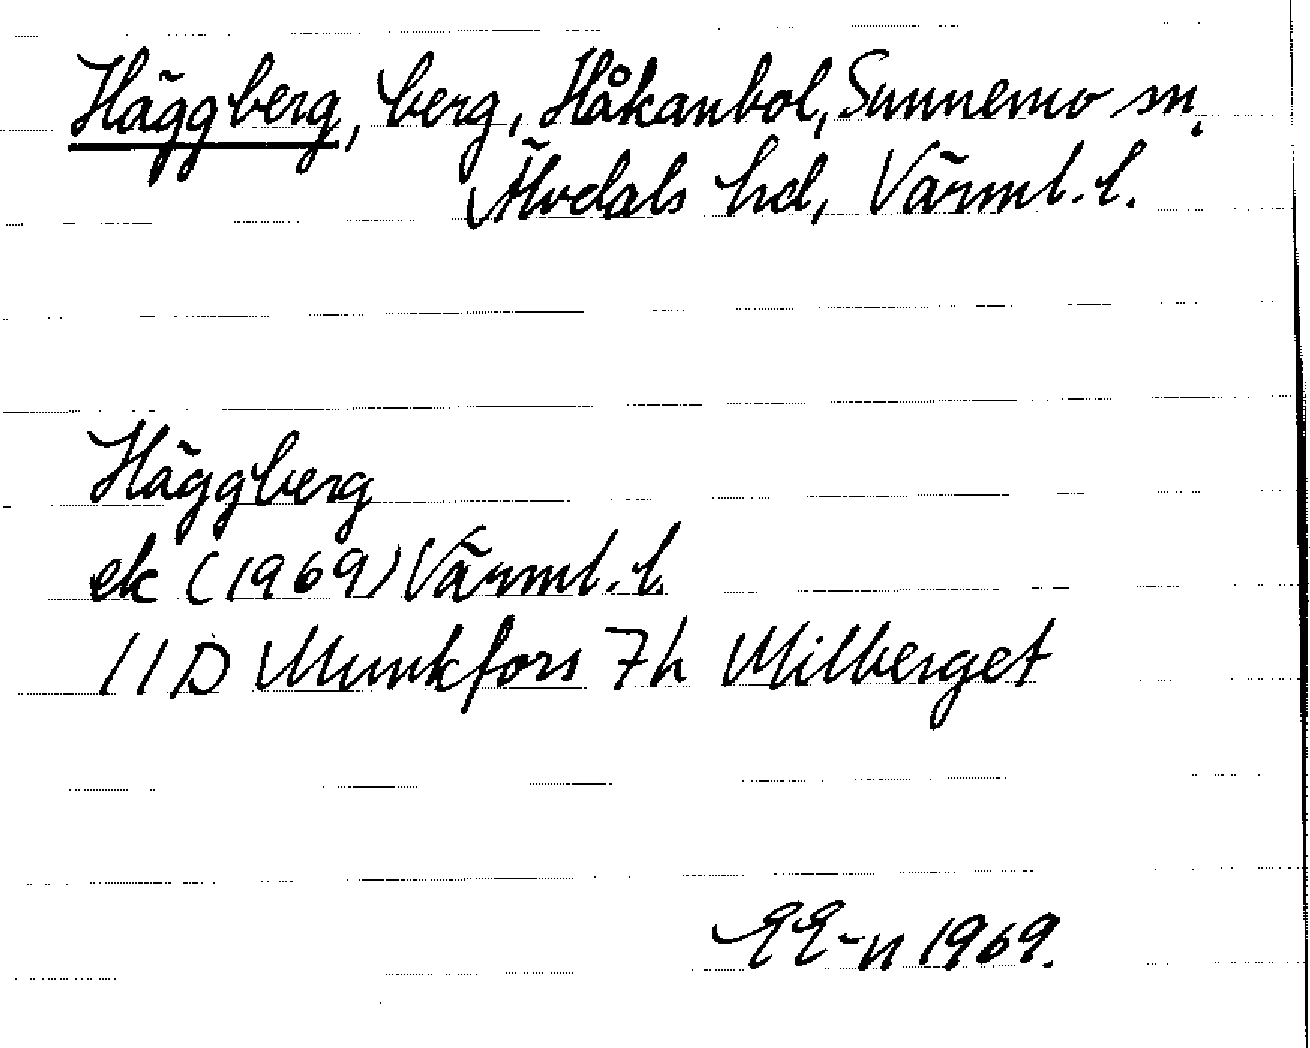 Häggberg, berg, Håkanbol, Sunnemo sn.
Älvdals hd, Värml. l.
Häggberg
ek (1969) Värml. l.
11D Munkfors 7h Milberget
EE-n 1969.